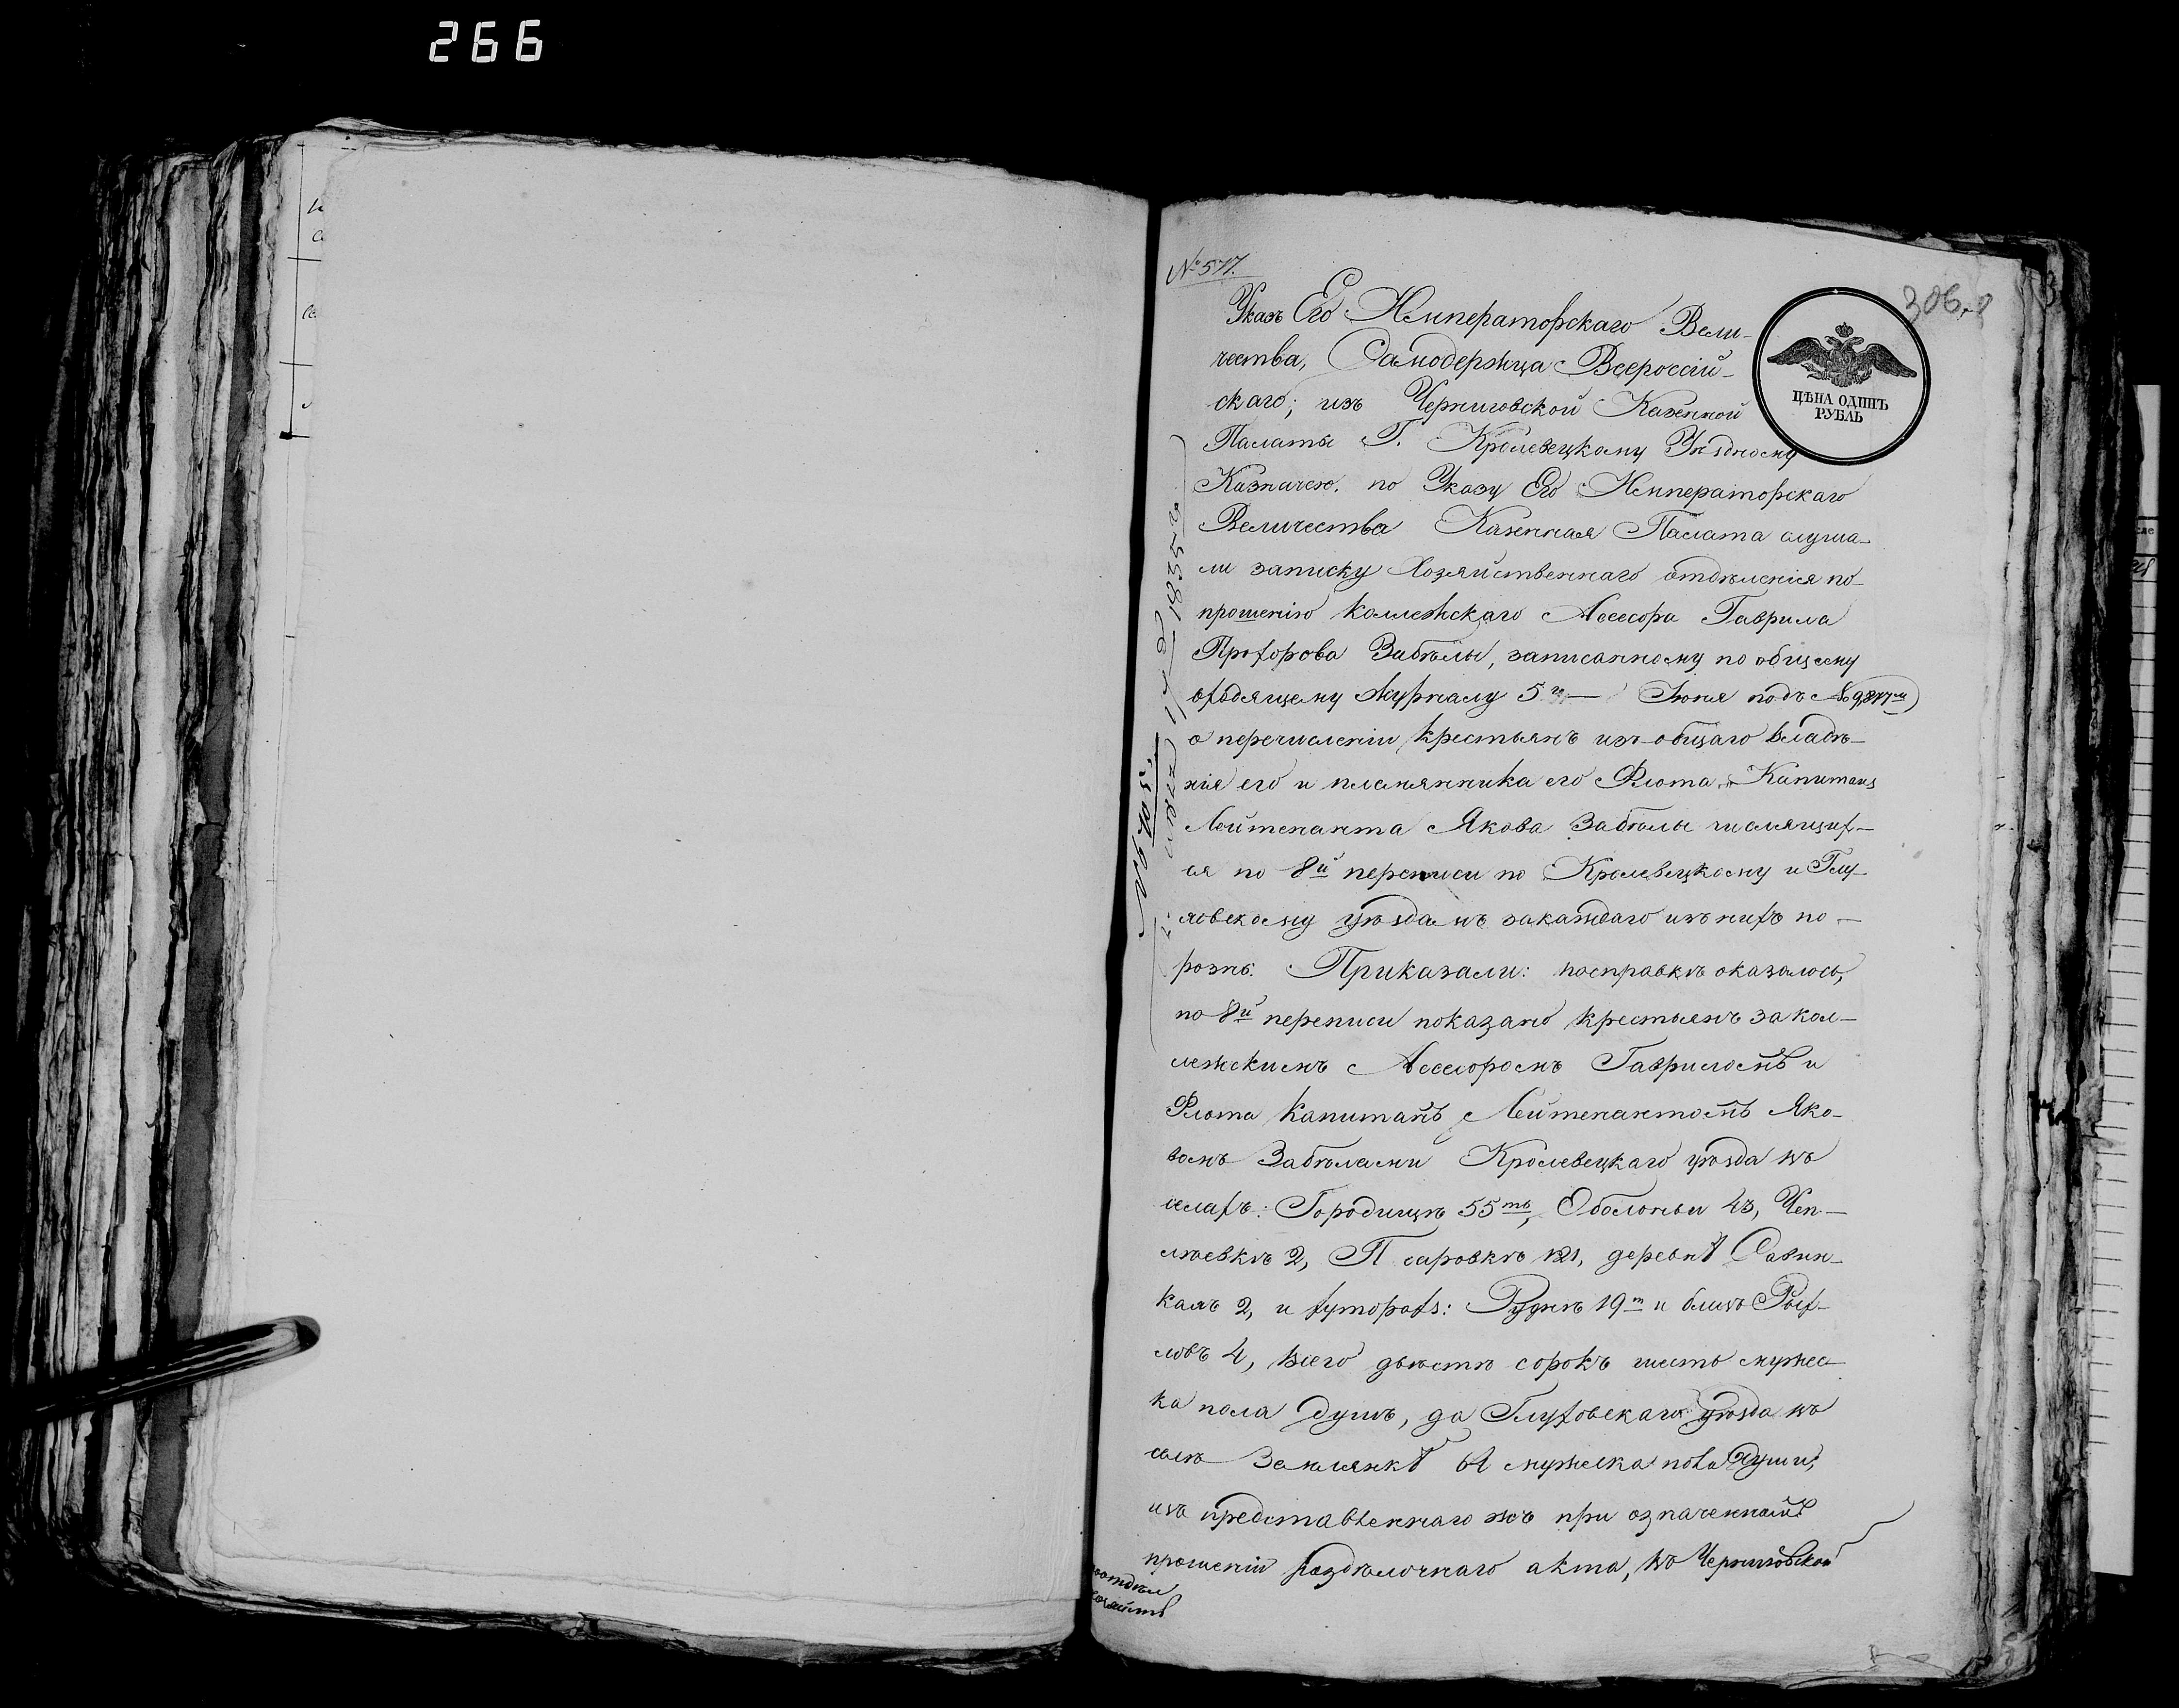 266
№ 577.
306.
Указъ Его Императорскаго Вели-
чества, Самодержца Всероссій-
скаго; изъ Черниговской Казенной
ЦѢНА ОДИНЪ
РУБЛЬ
Палаты Г. Кролевецкому Уѣздному
Казначею. по Указу Его Императорскаго
Величества Казенная Палата слуша-
ли записку Хозяйственнаго отдѣленія по-
прошенію Коллежскаго Асесора Гаврила
Прохорова Забѣлы, записанному по общему
входящему журналу 5 го Іюня подъ № 9,817 м
о перечисленіи крестьянъ изъ общаго владѣ-
нія его и племянника его Флота Капитанъ
Лейтенанта Якова Забѣлы числящих-
ся по 8й переписи по Кролевецкому и Глу-
ховскому уѣздамъ закаждаго изъ нихъ по-
рознь. Приказали: посправкѣ оказалось,
по 8й переписи показано крестьянъ за кол-
лежскимъ Асесоромъ Гавриломъ и
Флота Капитанъ Лейтенантомъ Яко-
вомъ Забѣлами Кролевецкаго уѣзда въ
селахъ: Городищѣ 55ть, Оболоньи 43, Чеп-
лѣевкѣ 2, Псаровкѣ 121, деревнѣ Савин-
кахъ 2, и хуторахъ: Руднѣ 19т и близъ Рых-
ловъ 4, всего двѣсти сорокъ шесть мужес-
ка пола душъ, да Глуховскаго уѣзда въ
селѣ Землянкѣ 61 мужеска пола души,
изъ представленнаго жъ при означенномъ
прошеніи раздѣлочнаго акта, въ Черниговской